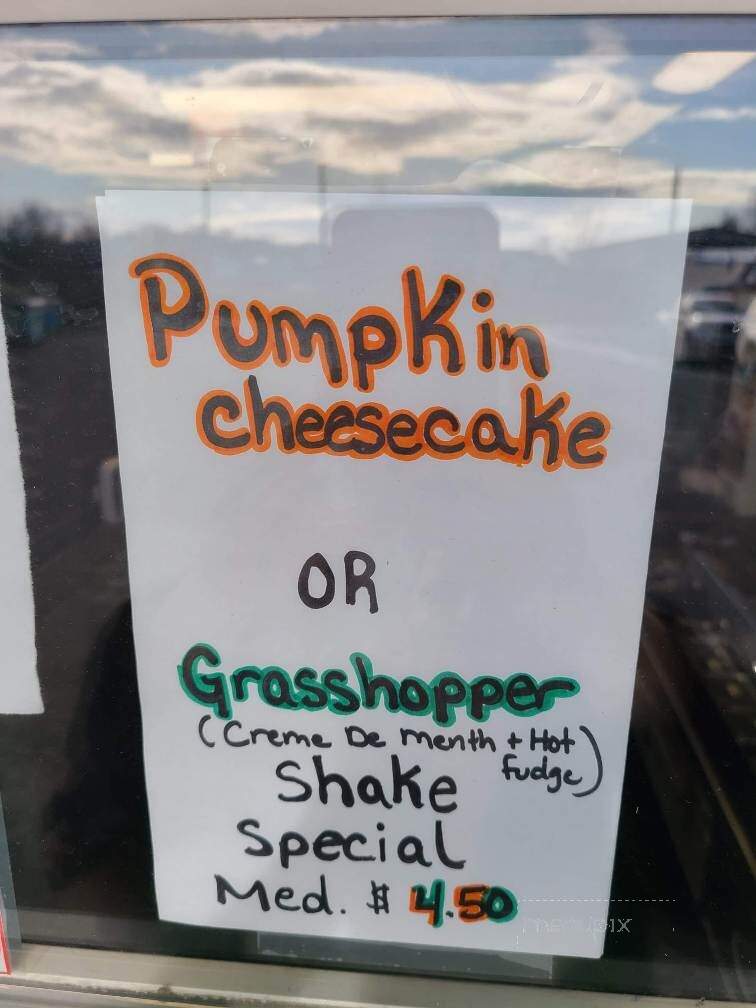 Pumpkin
cheesecake
OR
Grasshopper
(Creme De menth + Hot
fudge)
Shake
Special
Med. $ 4.50
menupix